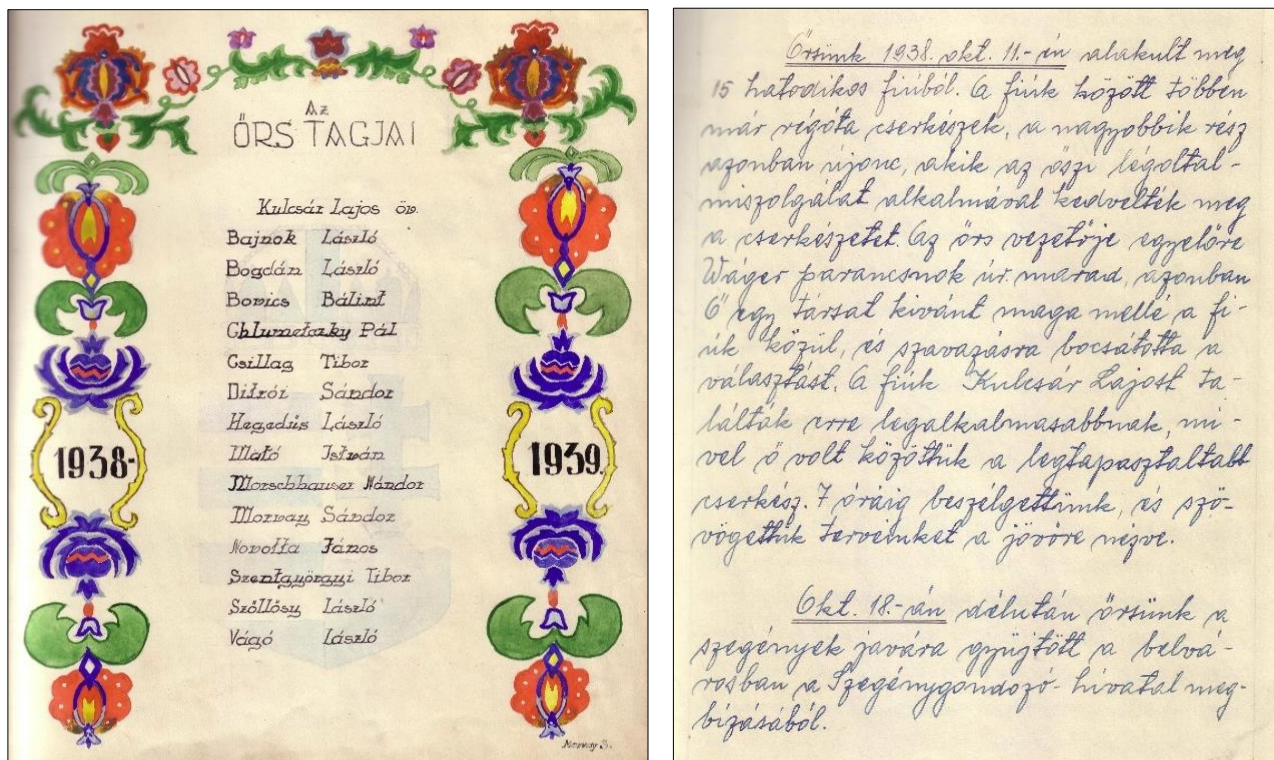 Az
ŐRS TAGJAI
Kulcsár Lajos őv.
Bajnok László
Bogdán László
Bovics Bálint
Chlumetzky Pál
Csillag Tibor
Ditrói Sándor
Hegedüs László
Mató István
Morschhauser Nándor
Morvay Sándor
Novotta János
Szentgyörgyi Tibor
Szőllősy László
Vágó László
1938-
1939.
Morvay S.
Őrsünk 1938. okt. 11.-én alakult meg
15 hatodikos fiúból. A fiúk között többen
már régóta cserkészek, a nagyobbik rész
azonban újonc, akik az őszi légoltal-
miszolgálat alkalmával kedvelték meg
a cserkészetet. Az őrs vezetője egyelőre
Wáger parancsnok úr marad, azonban
Ő egy társat kivánt maga mellé a fi-
úk közül, és szavazásra bocsátotta a
választást. A fiúk Kulcsár Lajost ta-
lálták erre legalkalmasabbnak, mi-
vel ő volt közöttük a legtapasztaltabb
cserkész. 7 óráig beszélgettünk, és szö-
vögettük terveinket a jövőre nézve.
Okt. 18.-án délután őrsünk a
szegények javára gyüjtött a belvá-
rosban a Szegénygondozó-hivatal meg-
bízásából.